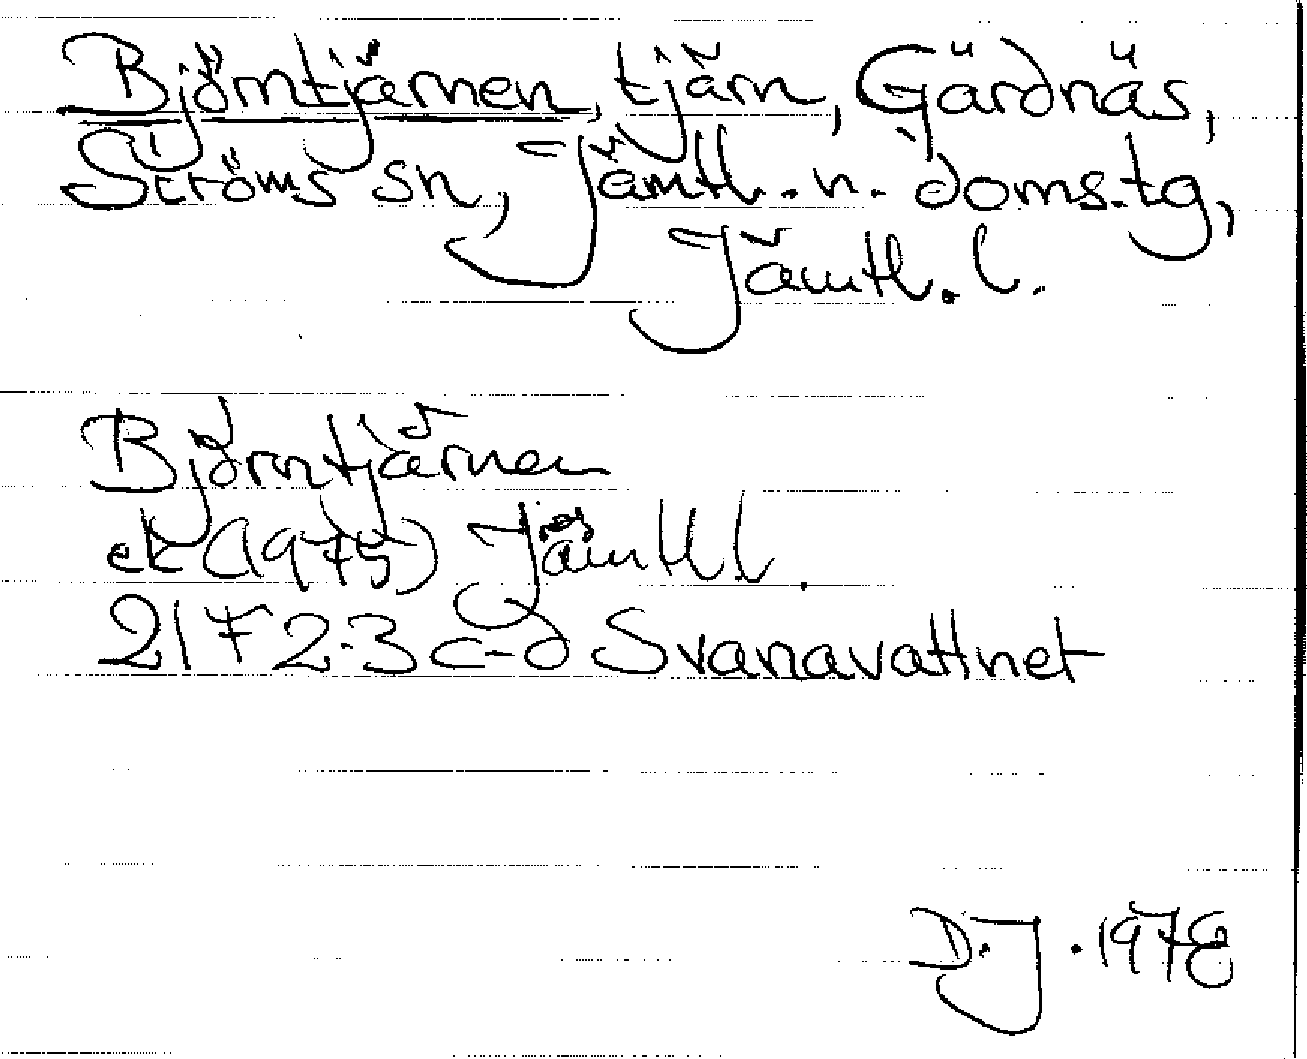 Björntjärnen, tjärn, Gärdnäs,
Ströms sn, Jämtl. n. doms.tg,
Jämtl. l.
Björntjärnen
ek (1975) Jämtl l.
21 F 2-3 c-d Svanavattnet
D.J. 1978